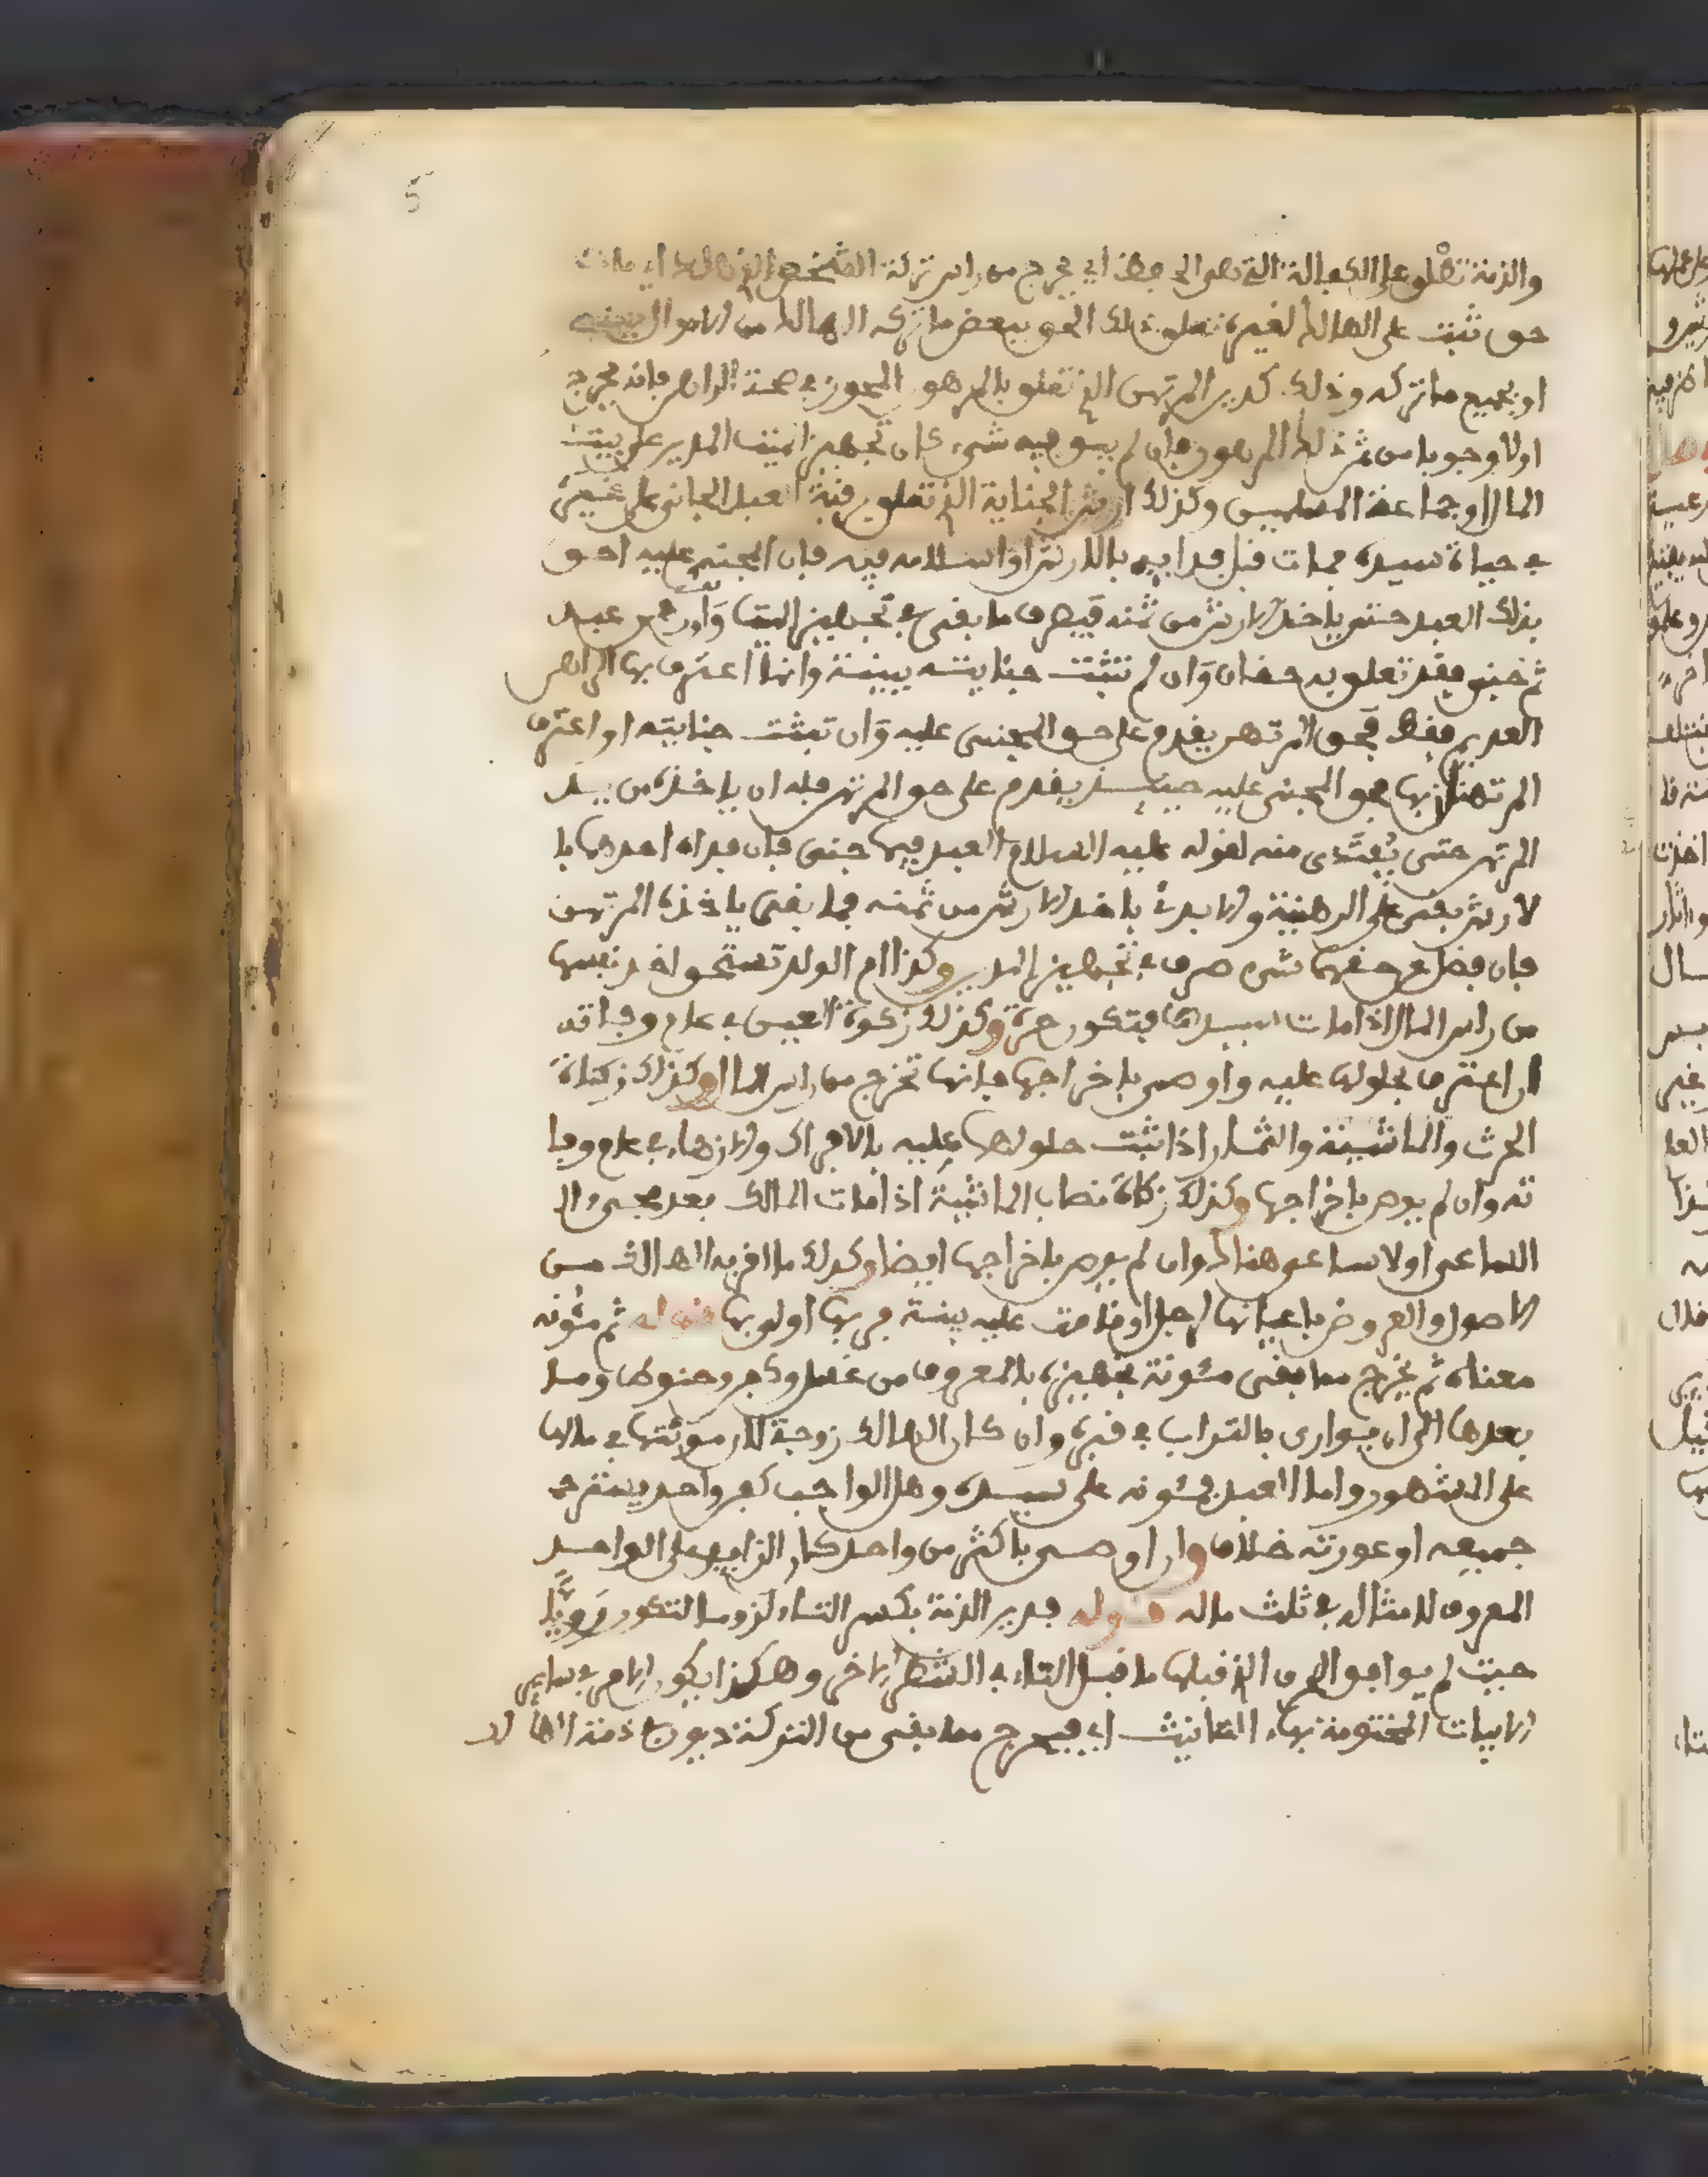 5
والذمة تطلق على الكفالة التي هي الحفظ اي يخرج من راس تركة الشخص الهالك اي مات
حق ثبت على الهالك لغيره تعلق ذلك الحق ببعض ما تركه الهالك من الاموال
او بجميع ما تركه وذلك كدين المرتهن الذي تعلق بالمرهون المحوز في صحة الراهن فانه يخرج
اولا وجوبا من ثمن ذلك المرهون فان لم يبق فيه شيء كان تجهيز الميت المدين على بيت
المال او جماعة المسلمين وكذلك ارش الجناية الذي تعلق برقبة العبد الجاني على غيره
في حياة سيده فمات قبل فدايه بالارش او اسلامه فيه فان المجني عليه احق
بذلك العبد حتى ياخذ الارش من ثمنه فيصرف ما بقي في تجهيز الميت وان رهن عبد
ثم جنى فقد تعلق به حقان وان لم تثبت جنايته ببينة وانما اعترف بها الراهن
العديم فقط فحق المرتهن يقدم على حق المجني عليه وان تثبت جنايته او اعترف
المرتهن بها فحق المجني عليه حينئذ يقدم على حق المرتهن فله ان ياخذه من يد
المرتهن حتى يفتدى منه لقوله عليه السلام العبد فيما جنى فان فداه احدهما با
لارش بقي على الرهنية والا بدئ باخذ الارش من ثمنه فما بقي ياخذه المرتهن
فان فضل عن حقهما شيء صرف في تجهيز المدين وكذا ام الولد تستحق اخذ نفسها
من راس المال اذا مات سيدها فتكون حرة وكذلك زكوة العين في عام وفاته
ان اعترف بحلولها عليه واوصى باخراجها فانها تخرج من راس المال وكذلك زكاة
الحرث والماشية والثمار اذا ثبت حلولها عليه بالافراك والازهاء في عام وفا
ته وان لم يوص باخراجها وكذلك زكاة نصاب الماشية اذا مات المالك بعد مجيء ال
الساعي او لا ساعي هنالك وان لم يوص باخراجها ايضا وكذلك ما اقر به الهالك من
الاصول والعروض باعيانها لرجل او قامت عليه بينة فربها اولى بها قوله ثم مئونه
معناه ثم يخرج مما بقي مئونة تجهيزه بالمعروف من غسل وكفن وحنوط وما
بعدها الى ان يوارى بالتراب في قبره وان كان الهالك زوجة لان مئونتها في مالها
على المشهور واما العبد فمئونه على سيده وهل الواجب كفن واحد يستر
جميعه او عورته خلاف وان اوصى باكثر من واحد كان الزايد على الواحد
المعروف لامثاله في ثلث ماله قوله فدين الذمة بكسر التاء لزوما لتكون رويا
حيث لم يوافق الحرف الذي قبلها ما قبل التاء في الشطر الاخر وهكذا يكون الامر في ساير
الابيات المختومة بهاء التانيث اي فيخرج مما بقي من التركة ديون ذمة الهالك